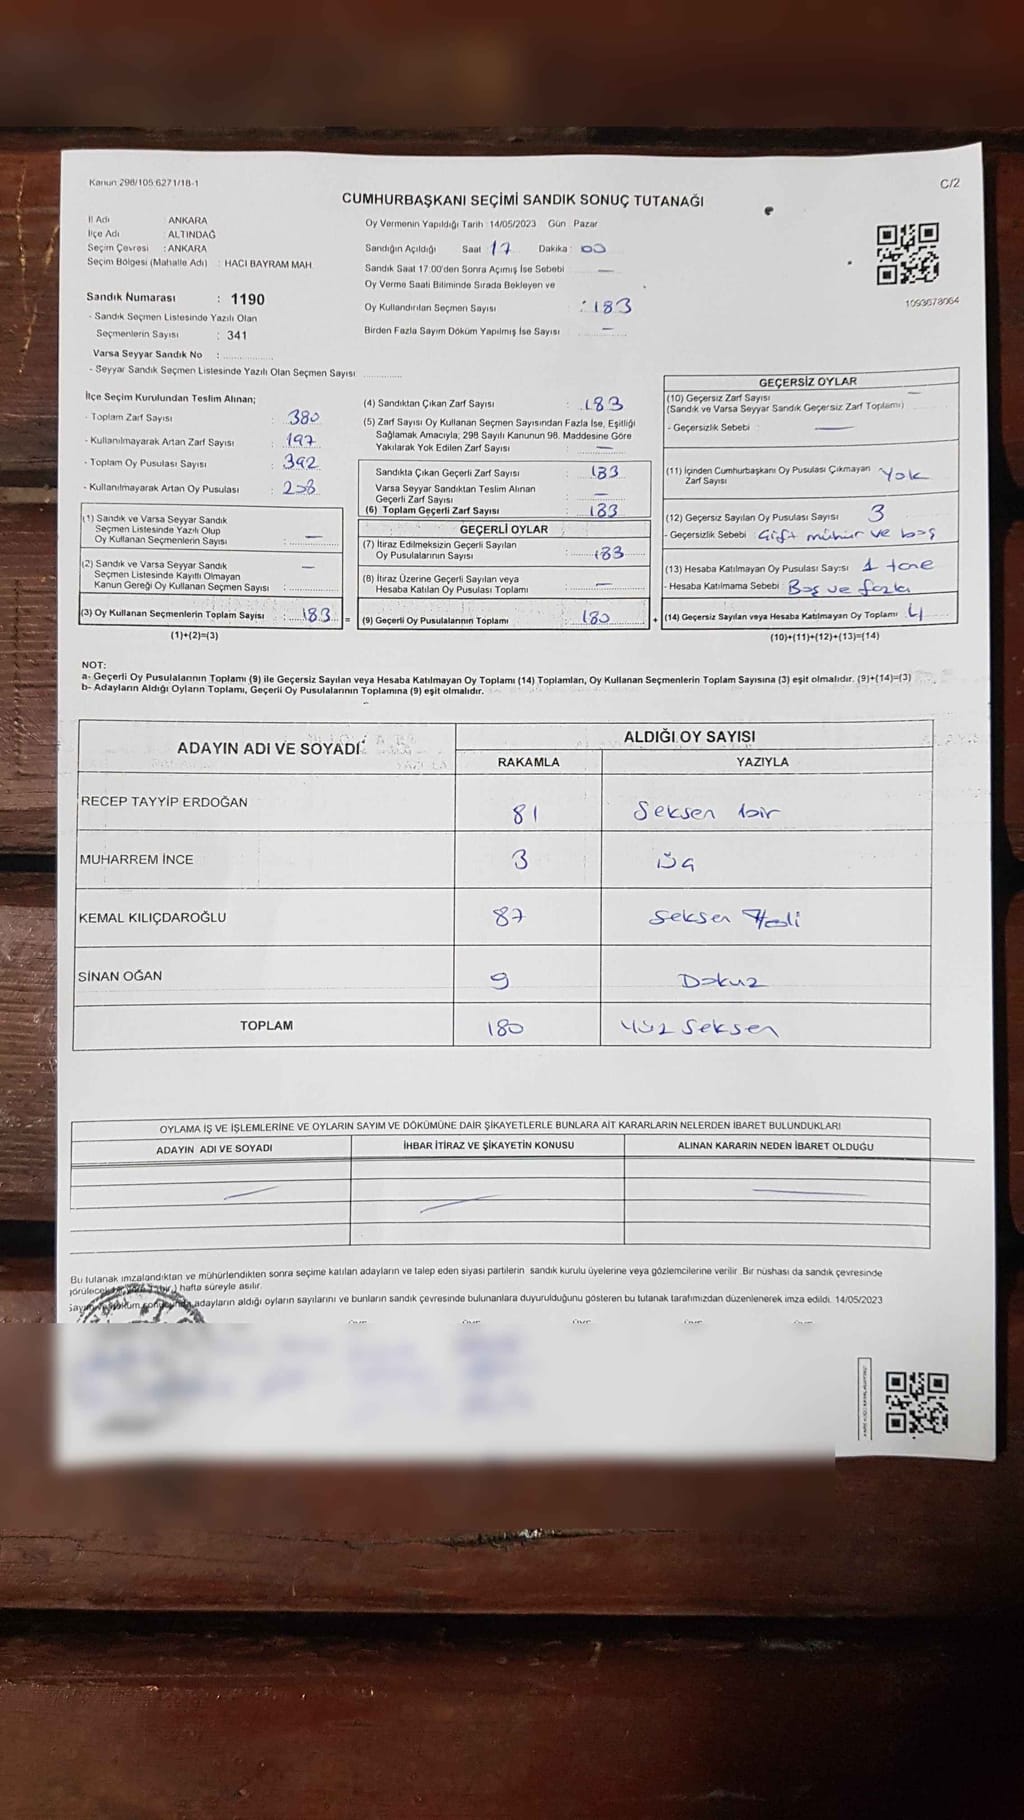 Kanun 298/105 6271/18-1
C/2
CUMHURBAŞKANI SEÇİMİ SANDIK SONUÇ TUTANAĞI
İl Adı : ANKARA
İlçe Adı : ALTINDAĞ
Seçim Çevresi : ANKARA
Seçim Bölgesi (Mahalle Adı) : HACI BAYRAM MAH.
Sandık Numarası : 1190
- Sandık Seçmen Listesinde Yazılı Olan
Seçmenlerin Sayısı : 341
Varsa Seyyar Sandık No :
- Seyyar Sandık Seçmen Listesinde Yazılı Olan Seçmen Sayısı
Oy Vermenin Yapıldığı Tarih :14/05/2023 Gün : Pazar
Sandığın Açıldığı Saat 17 Dakika : 00
Sandık Saat 17:00'den Sonra Açımış İse Sebebi —
Oy Verme Saati Bitiminde Sırada Bekleyen ve
Oy Kullandırılan Seçmen Sayısı : 183
Birden Fazla Sayım Döküm Yapılmış İse Sayısı —
1093678064
İlçe Seçim Kurulundan Teslim Alınan;
- Toplam Zarf Sayısı : 380
- Kullanılmayarak Artan Zarf Sayısı : 197
- Toplam Oy Pusulası Sayısı : 392
- Kullanılmayarak Artan Oy Pusulası : 208
(1) Sandık ve Varsa Seyyar Sandık
Seçmen Listesinde Yazılı Olup
Oy Kullanan Seçmenlerin Sayısı : —
(2) Sandık ve Varsa Seyyar Sandık
Seçmen Listesinde Kayıtlı Olmayan
Kanun Gereği Oy Kullanan Seçmen Sayısı : —
(3) Oy Kullanan Seçmenlerin Toplam Sayısı : 183
(1)+(2)=(3)
=
(4) Sandıktan Çıkan Zarf Sayısı : 183
(5) Zarf Sayısı Oy Kullanan Seçmen Sayısından Fazla İse, Eşitliği
Sağlamak Amacıyla; 298 Sayılı Kanunun 98. Maddesine Göre
Yakılarak Yok Edilen Zarf Sayısı : —
Sandıkta Çıkan Geçerli Zarf Sayısı : 183
Varsa Seyyar Sandıktan Teslim Alınan
Geçerli Zarf Sayısı : —
(6) Toplam Geçerli Zarf Sayısı : 183
GEÇERLİ OYLAR
(7) İtiraz Edilmeksizin Geçerli Sayılan
Oy Pusulalarının Sayısı : 183
(8) İtiraz Üzerine Geçerli Sayılan veya
Hesaba Katılan Oy Pusulası Toplamı : —
(9) Geçerli Oy Pusulalarının Toplamı : 180
+
GEÇERSİZ OYLAR
(10) Geçersiz Zarf Sayısı —
(Sandık ve Varsa Seyyar Sandık Geçersiz Zarf Toplamı)
- Geçersizlik Sebebi : —
(11) İçinden Cumhurbaşkanı Oy Pusulası Çıkmayan
Zarf Sayısı Yok
(12) Geçersiz Sayılan Oy Pusulası Sayısı 3
- Geçersizlik Sebebi Çift mühür ve boş
(13) Hesaba Katılmayan Oy Pusulası Sayısı 1 tane
- Hesaba Katılmama Sebebi : Boş ve fazla
(14) Geçersiz Sayılan veya Hesaba Katılmayan Oy Toplamı : 4
(10)+(11)+(12)+(13)=(14)
NOT:
a- Geçerli Oy Pusulalarının Toplamı (9) ile Geçersiz Sayılan veya Hesaba Katılmayan Oy Toplamı (14) Toplamları, Oy Kullanan Seçmenlerin Toplam Sayısına (3) eşit olmalıdır. (9)+(14)=(3)
b- Adayların Aldığı Oyların Toplamı, Geçerli Oy Pusulalarının Toplamına (9) eşit olmalıdır.
ADAYIN ADI VE SOYADI
ALDIĞI OY SAYISI
RAKAMLA YAZIYLA
RECEP TAYYİP ERDOĞAN 81 Seksen bir
MUHARREM İNCE 3 Üç
KEMAL KILIÇDAROĞLU 87 Seksen Yedi
SİNAN OĞAN 9 Dokuz
TOPLAM 180 Yüz Seksen
OYLAMA İŞ VE İŞLEMLERİNE VE OYLARIN SAYIM VE DÖKÜMÜNE DAİR ŞİKAYETLERLE BUNLARA AİT KARARLARIN NELERDEN İBARET BULUNDUKLARI
ADAYIN ADI VE SOYADI İHBAR İTİRAZ VE ŞİKAYETİN KONUSU ALINAN KARARIN NEDEN İBARET OLDUĞU
Bu tutanak imzalandıktan ve mühürlendikten sonra seçime katılan adayların ve talep eden siyasi partilerin sandık kurulu üyelerine veya gözlemcilerine verilir. Bir nüshası da sandık çevresinde
hafta süreyle asılır.
adayların aldığı oyların sayılarını ve bunların sandık çevresinde bulunanlara duyurulduğunu gösteren bu tutanak tarafımızdan düzenlenerek imza edildi. 14/05/2023